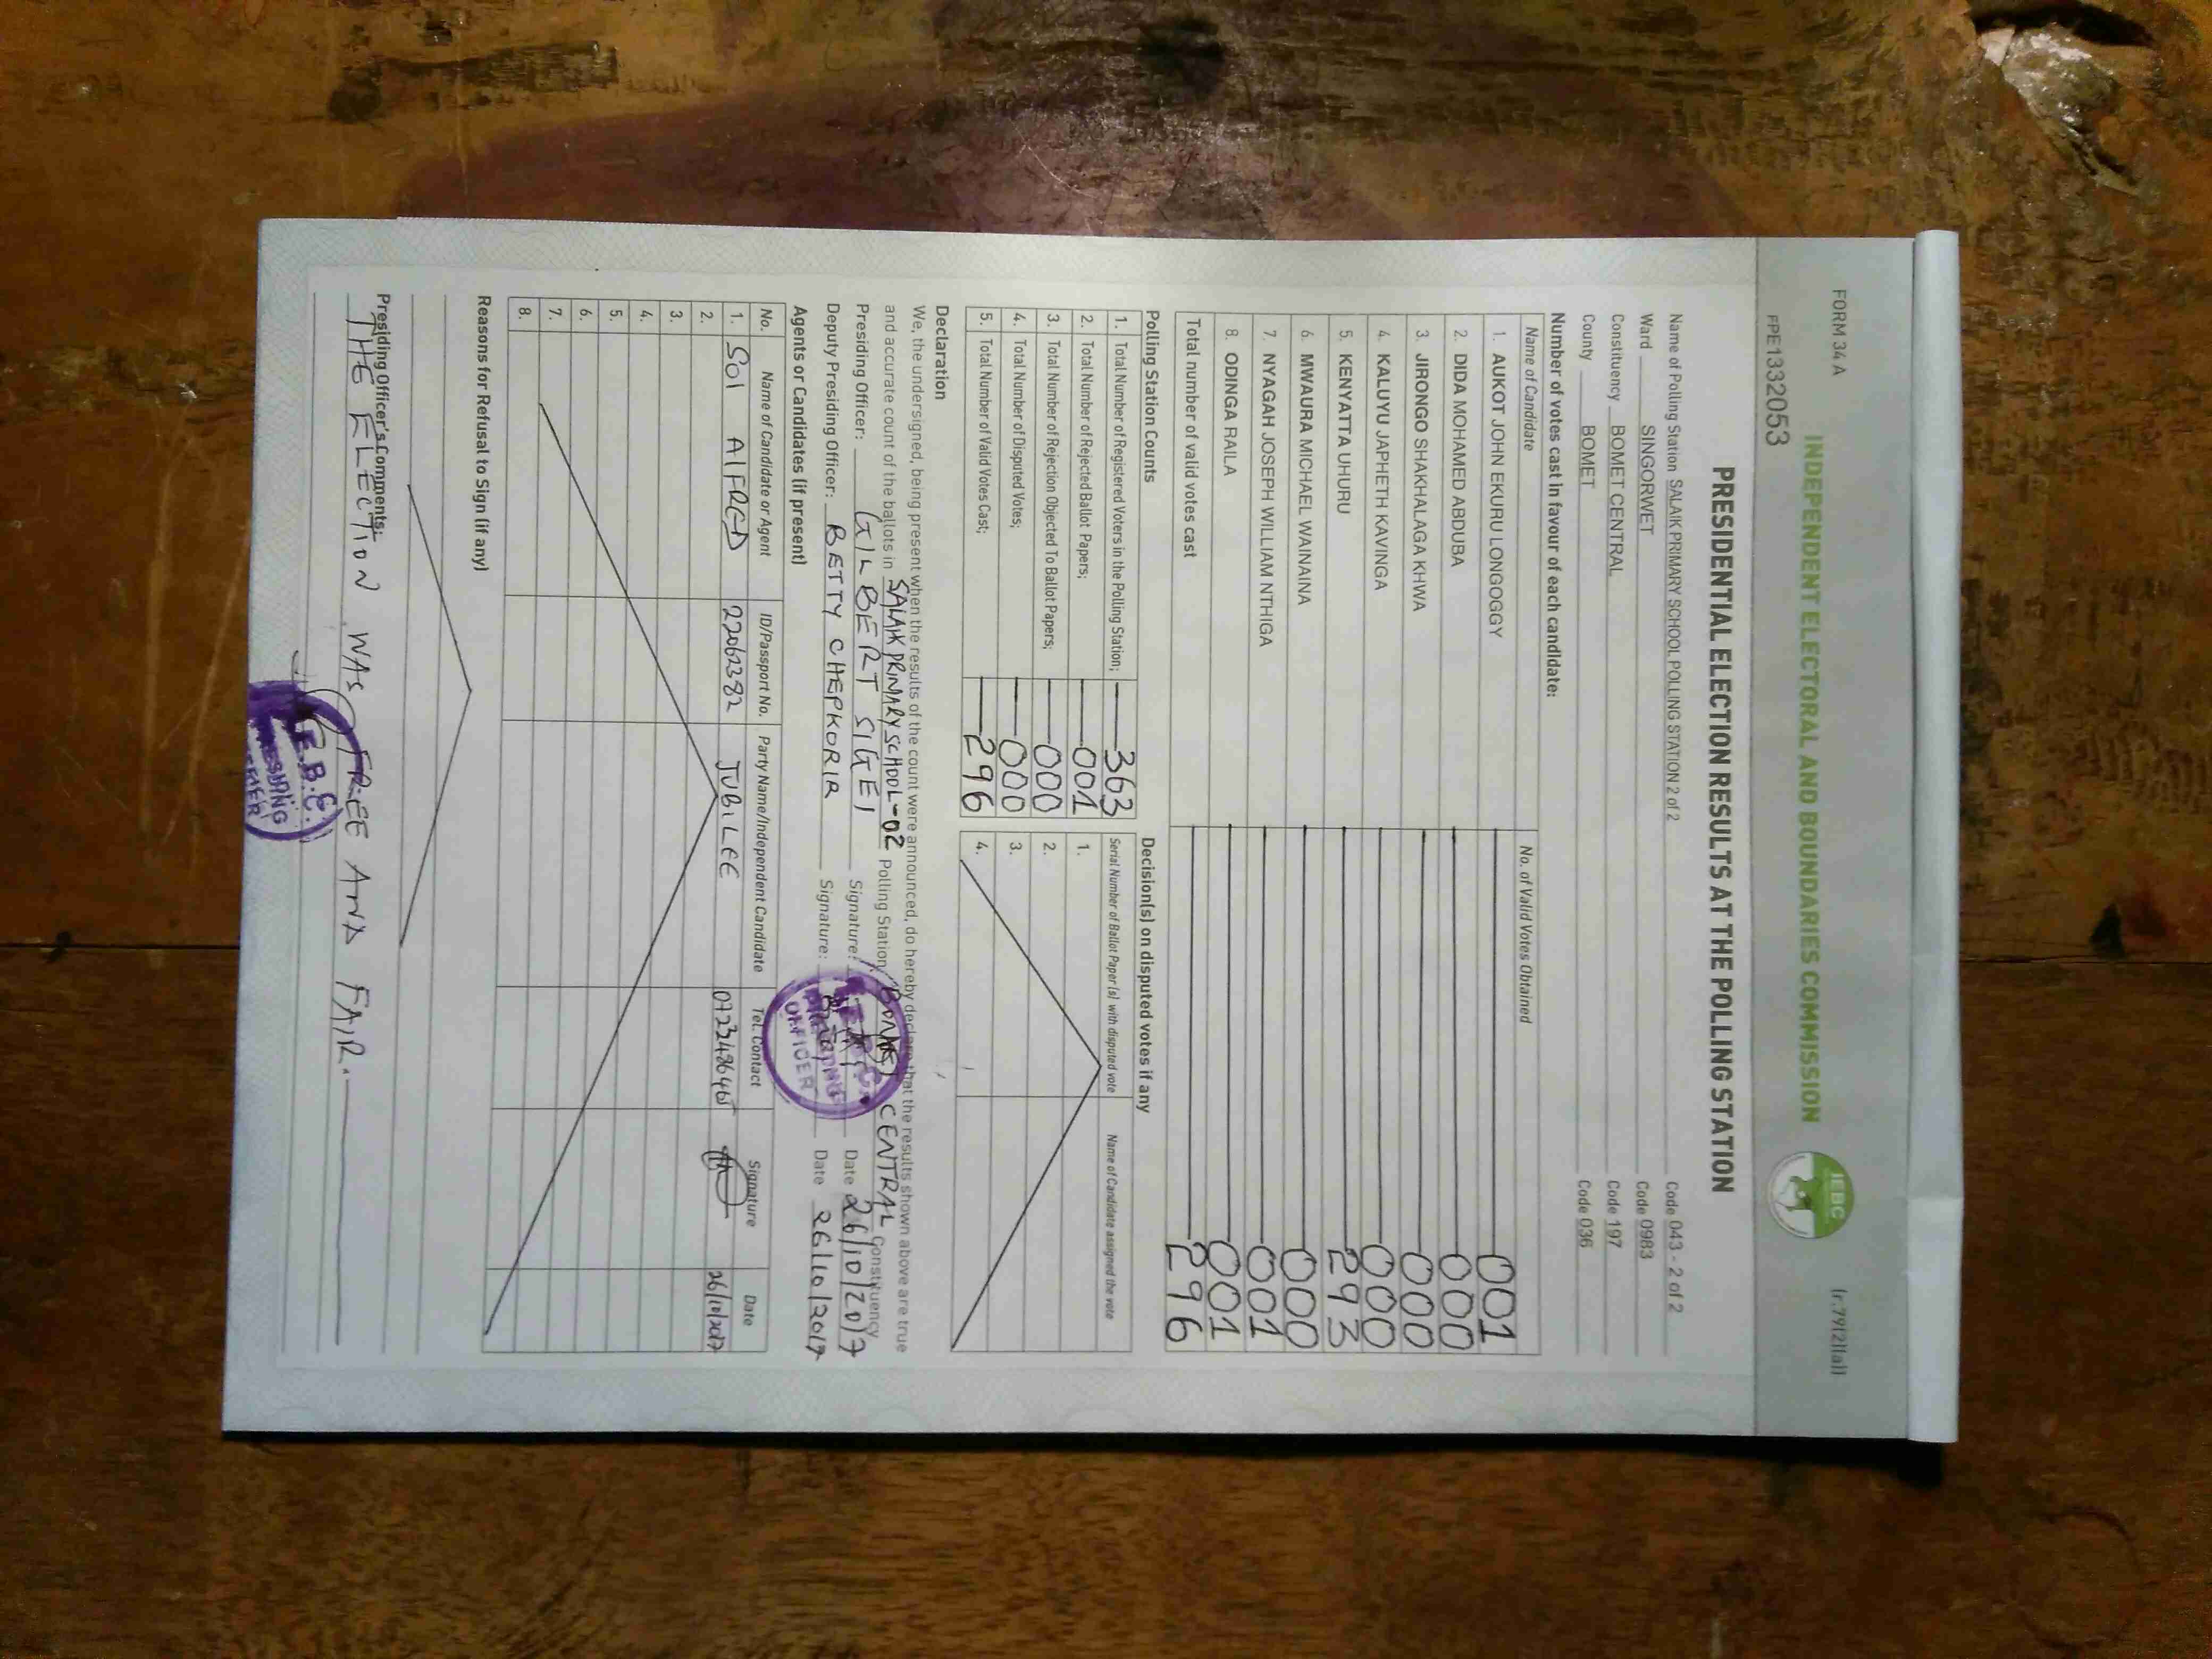 FORM 34 A
(r.79(2)(a))
INDEPENDENT ELECTORAL AND BOUNDARIES COMMISSION
IEBC
FPE1332053
PRESIDENTIAL ELECTION RESULTS AT THE POLLING STATION
Name of Polling Station SALAIK PRIMARY SCHOOL POLLING STATION 2 of 2 Code 043 - 2 of 2
Ward SINGORWET Code 0983
Constituency BOMET CENTRAL Code 197
County BOMET Code 036
Number of votes cast in favour of each candidate:
Name of Candidate No. of Valid Votes Obtained
1. AUKOT JOHN EKURU LONGOGGY 001
2. DIDA MOHAMED ABDUBA 000
3. JIRONGO SHAKHALAGA KHWA 000
4. KALUYU JAPHETH KAVINGA 000
5. KENYATTA UHURU 293
6. MWAURA MICHAEL WAINAINA 000
7. NYAGAH JOSEPH WILLIAM NTHIGA 001
8. ODINGA RAILA 001
Total number of valid votes cast 296
Polling Station Counts
1. Total Number of Registered Voters in the Polling Station; 363
2. Total Number of Rejected Ballot Papers; 001
3. Total Number of Rejection Objected To Ballot Papers; 000
4. Total Number of Disputed Votes; 000
5. Total Number of Valid Votes Cast; 296
Decision(s) on disputed votes if any
Serial Number of Ballot Paper (s) with disputed vote Name of Candidate assigned the vote
1.
2.
3.
4.
Declaration
We, the undersigned, being present when the results of the count were announced, do hereby declare that the results shown above are true
and accurate count of the ballots in SALAIK PRIMARY SCHOOL-02 Polling Station BOMET CENTRAL Constituency
Presiding Officer: GILBERT SIGEI Signature: Date 26/10/2017
Deputy Presiding Officer: BETTY CHEPKORIR Signature: Date 26/10/2017
OFFICER
Agents or Candidates (if present)
No. Name of Candidate or Agent ID/Passport No. Party Name/Independent Candidate Tel. Contact Signature Date
1. SOI ALFRED 22062382 JUBILEE 26/10/2017
2.
3.
4.
5.
6.
7.
8.
Reasons for Refusal to Sign (if any)
Presiding Officer's Comments:
THE ELECTION WAS FREE AND FAIR.